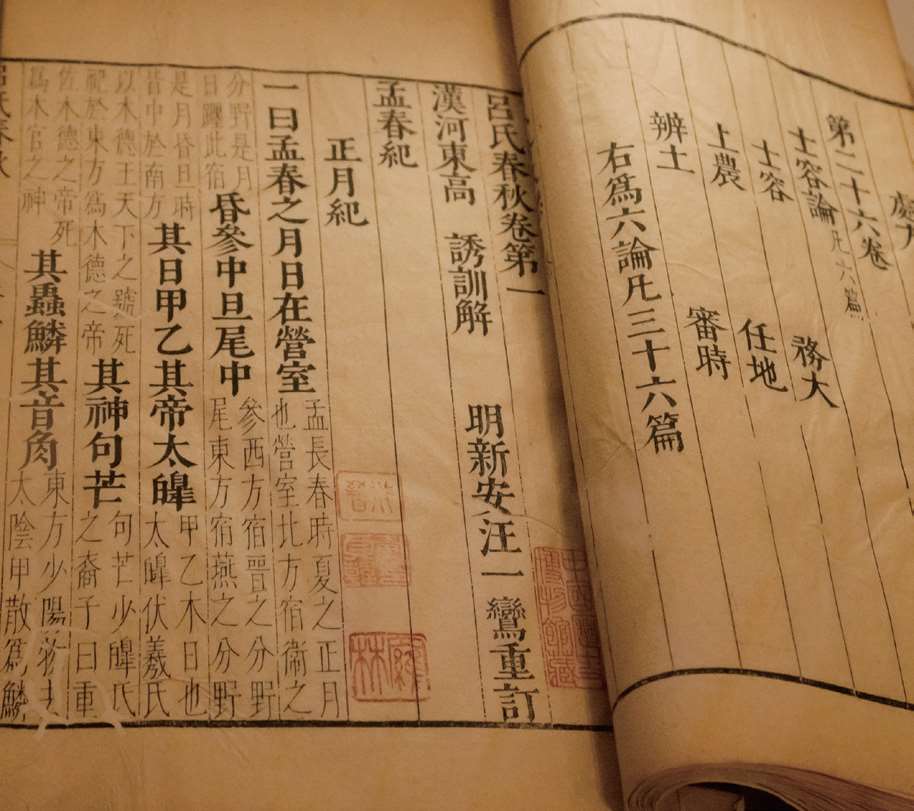 處方
第二十六卷
士容論 凡六篇
士容 務大
上農 任地
辨土 審時
右爲六論凡三十六篇
呂氏春秋卷第一
漢河東高 誘訓解 明新安汪一鸞重訂
孟春紀
正月紀
一曰孟春之月日在營室 孟長春時夏之正月也營室北方宿衛之
分野是月日躔此宿 昏參中旦尾中 參西方宿晉之分野尾東方宿燕之分野
是月昏旦時皆中於南方 其日甲乙其帝太皞 甲乙木日也太皞伏羲氏
以木德王天下之號死祀於東方爲木德之帝 其神句芒 句芒少皞氏之裔子曰重
佐木德之帝死爲木官之神 其蟲鱗其音角 東方少陽物去太陰甲散爲鱗
呂氏春秋